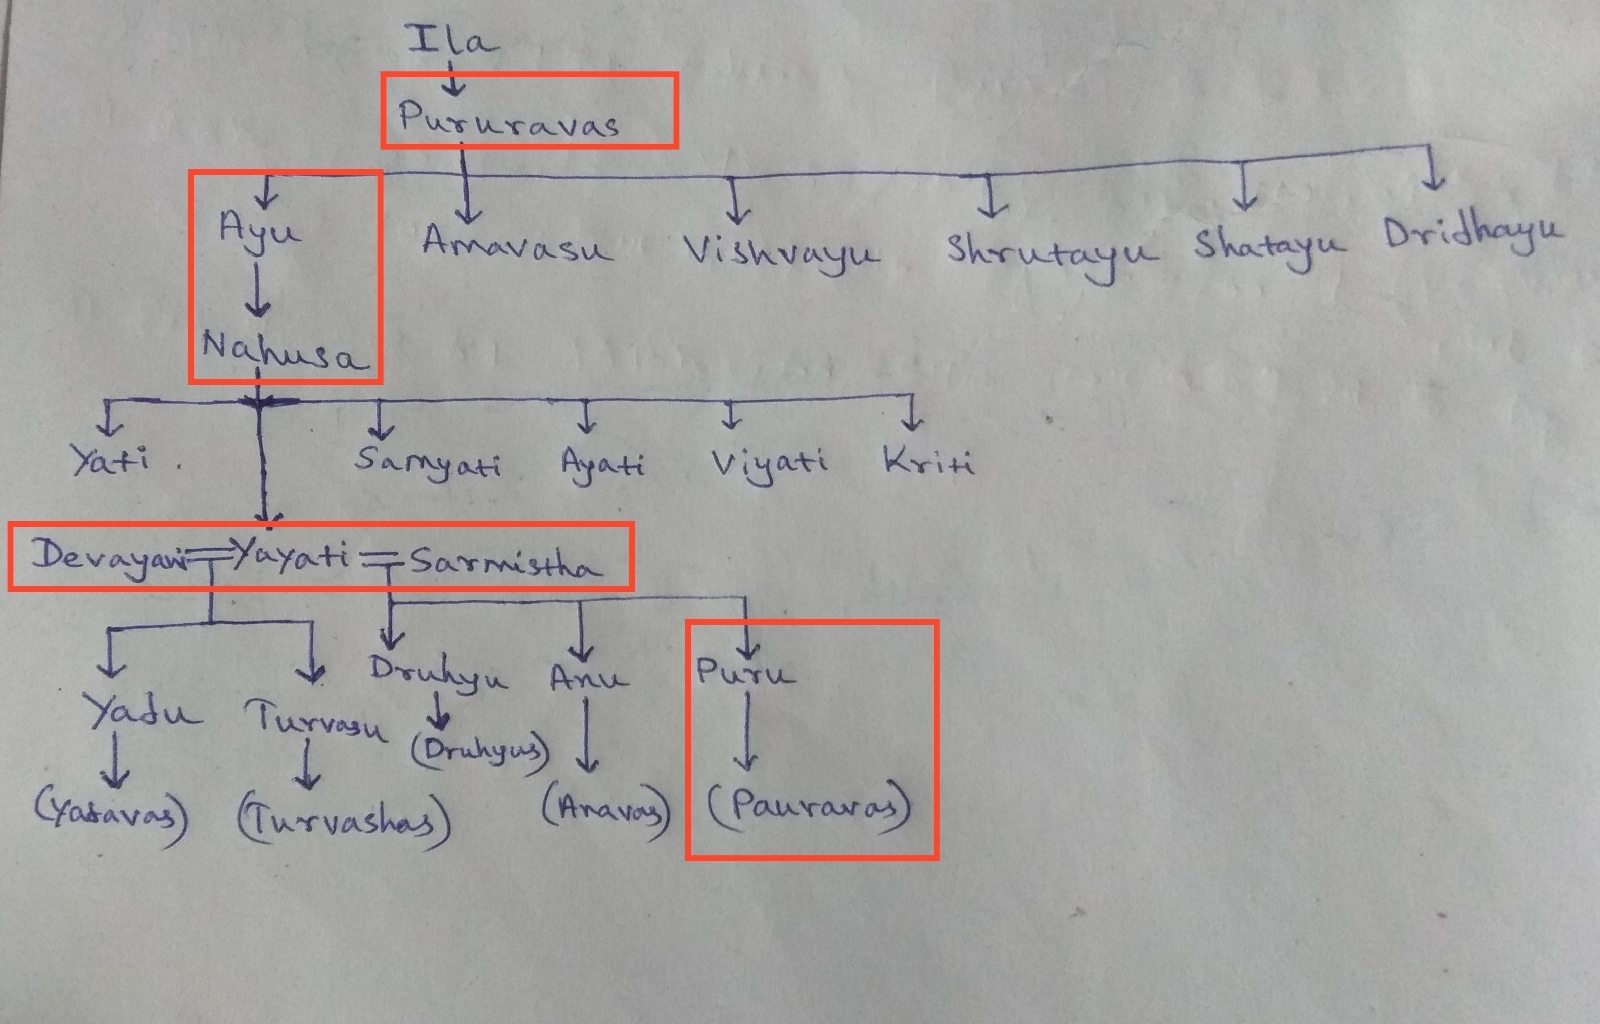 Ila
Pururavas
Ayu Amavasu Vishvayu Shrutayu Shatayu Dridhayu
Nahusa
Yati Samyati Ayati Viyati Kriti
Devayani Yayati Sarmistha
Yadu Turvasu Druhyu Anu Puru
(Druhyus)
(Yadavas) (Turvashas) (Anavas) (Pauravas)